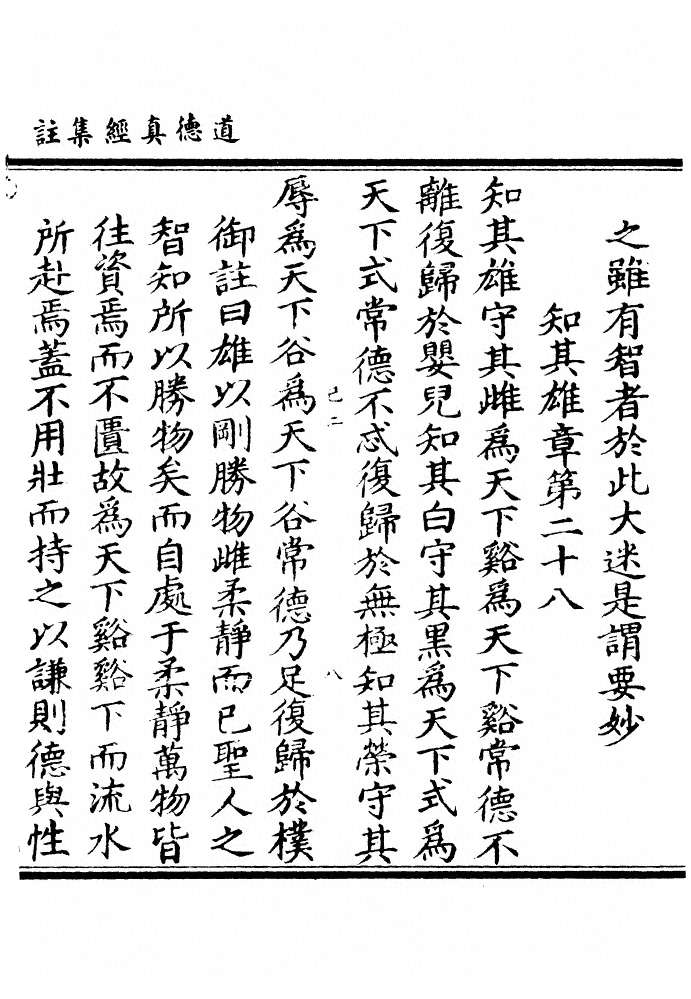 道德真經集註
之雖有智者於此大迷是謂要妙
知其雄章第二十八
知其雄守其雌為天下谿為天下谿常德不
離復歸於嬰兒知其白守其黑為天下式為
天下式常德不忒復歸於無極知其榮守其
己二
八
辱為天下谷為天下谷常德乃足復歸於樸
御註曰雄以剛勝物雌柔靜而已聖人之
智知所以勝物矣而自處于柔靜萬物皆
往資焉而不匱故為天下谿谿下而流水
所赴焉蓋不用壯而持之以謙則德與性